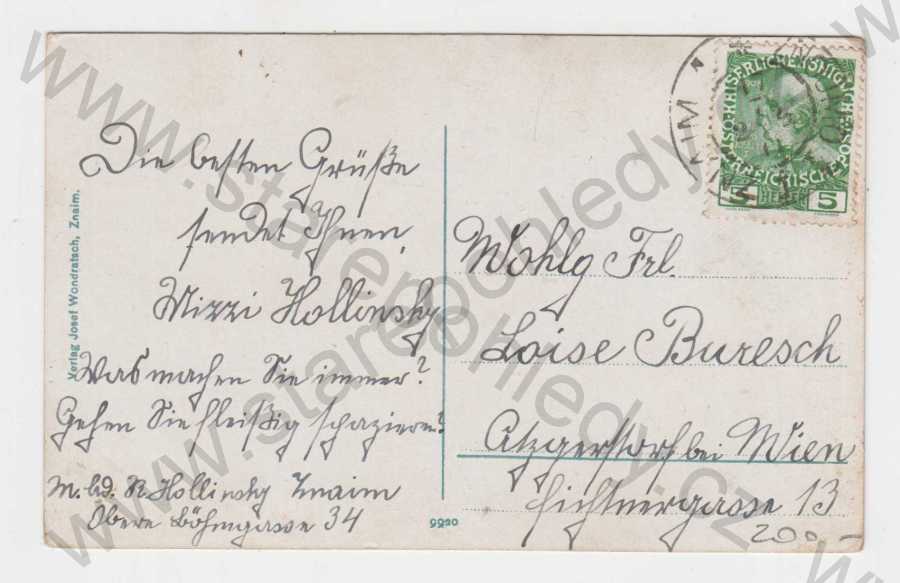 Die besten Grüße
sendet Ihnen,
Mizzi Hollinsky
Was machen Sie immer?
Gehen Sie fleißig spazieren?
M. Hollinsky Znaim
Obere Böhmgasse 34
Verlag Josef Wondratsch, Znaim.
9920
ZNAIM
5 5
Wohlg Frl.
Loise Buresch
Atzgersdorf bei Wien
Fichtnergasse 13
200.-
www.starepohledy.cz